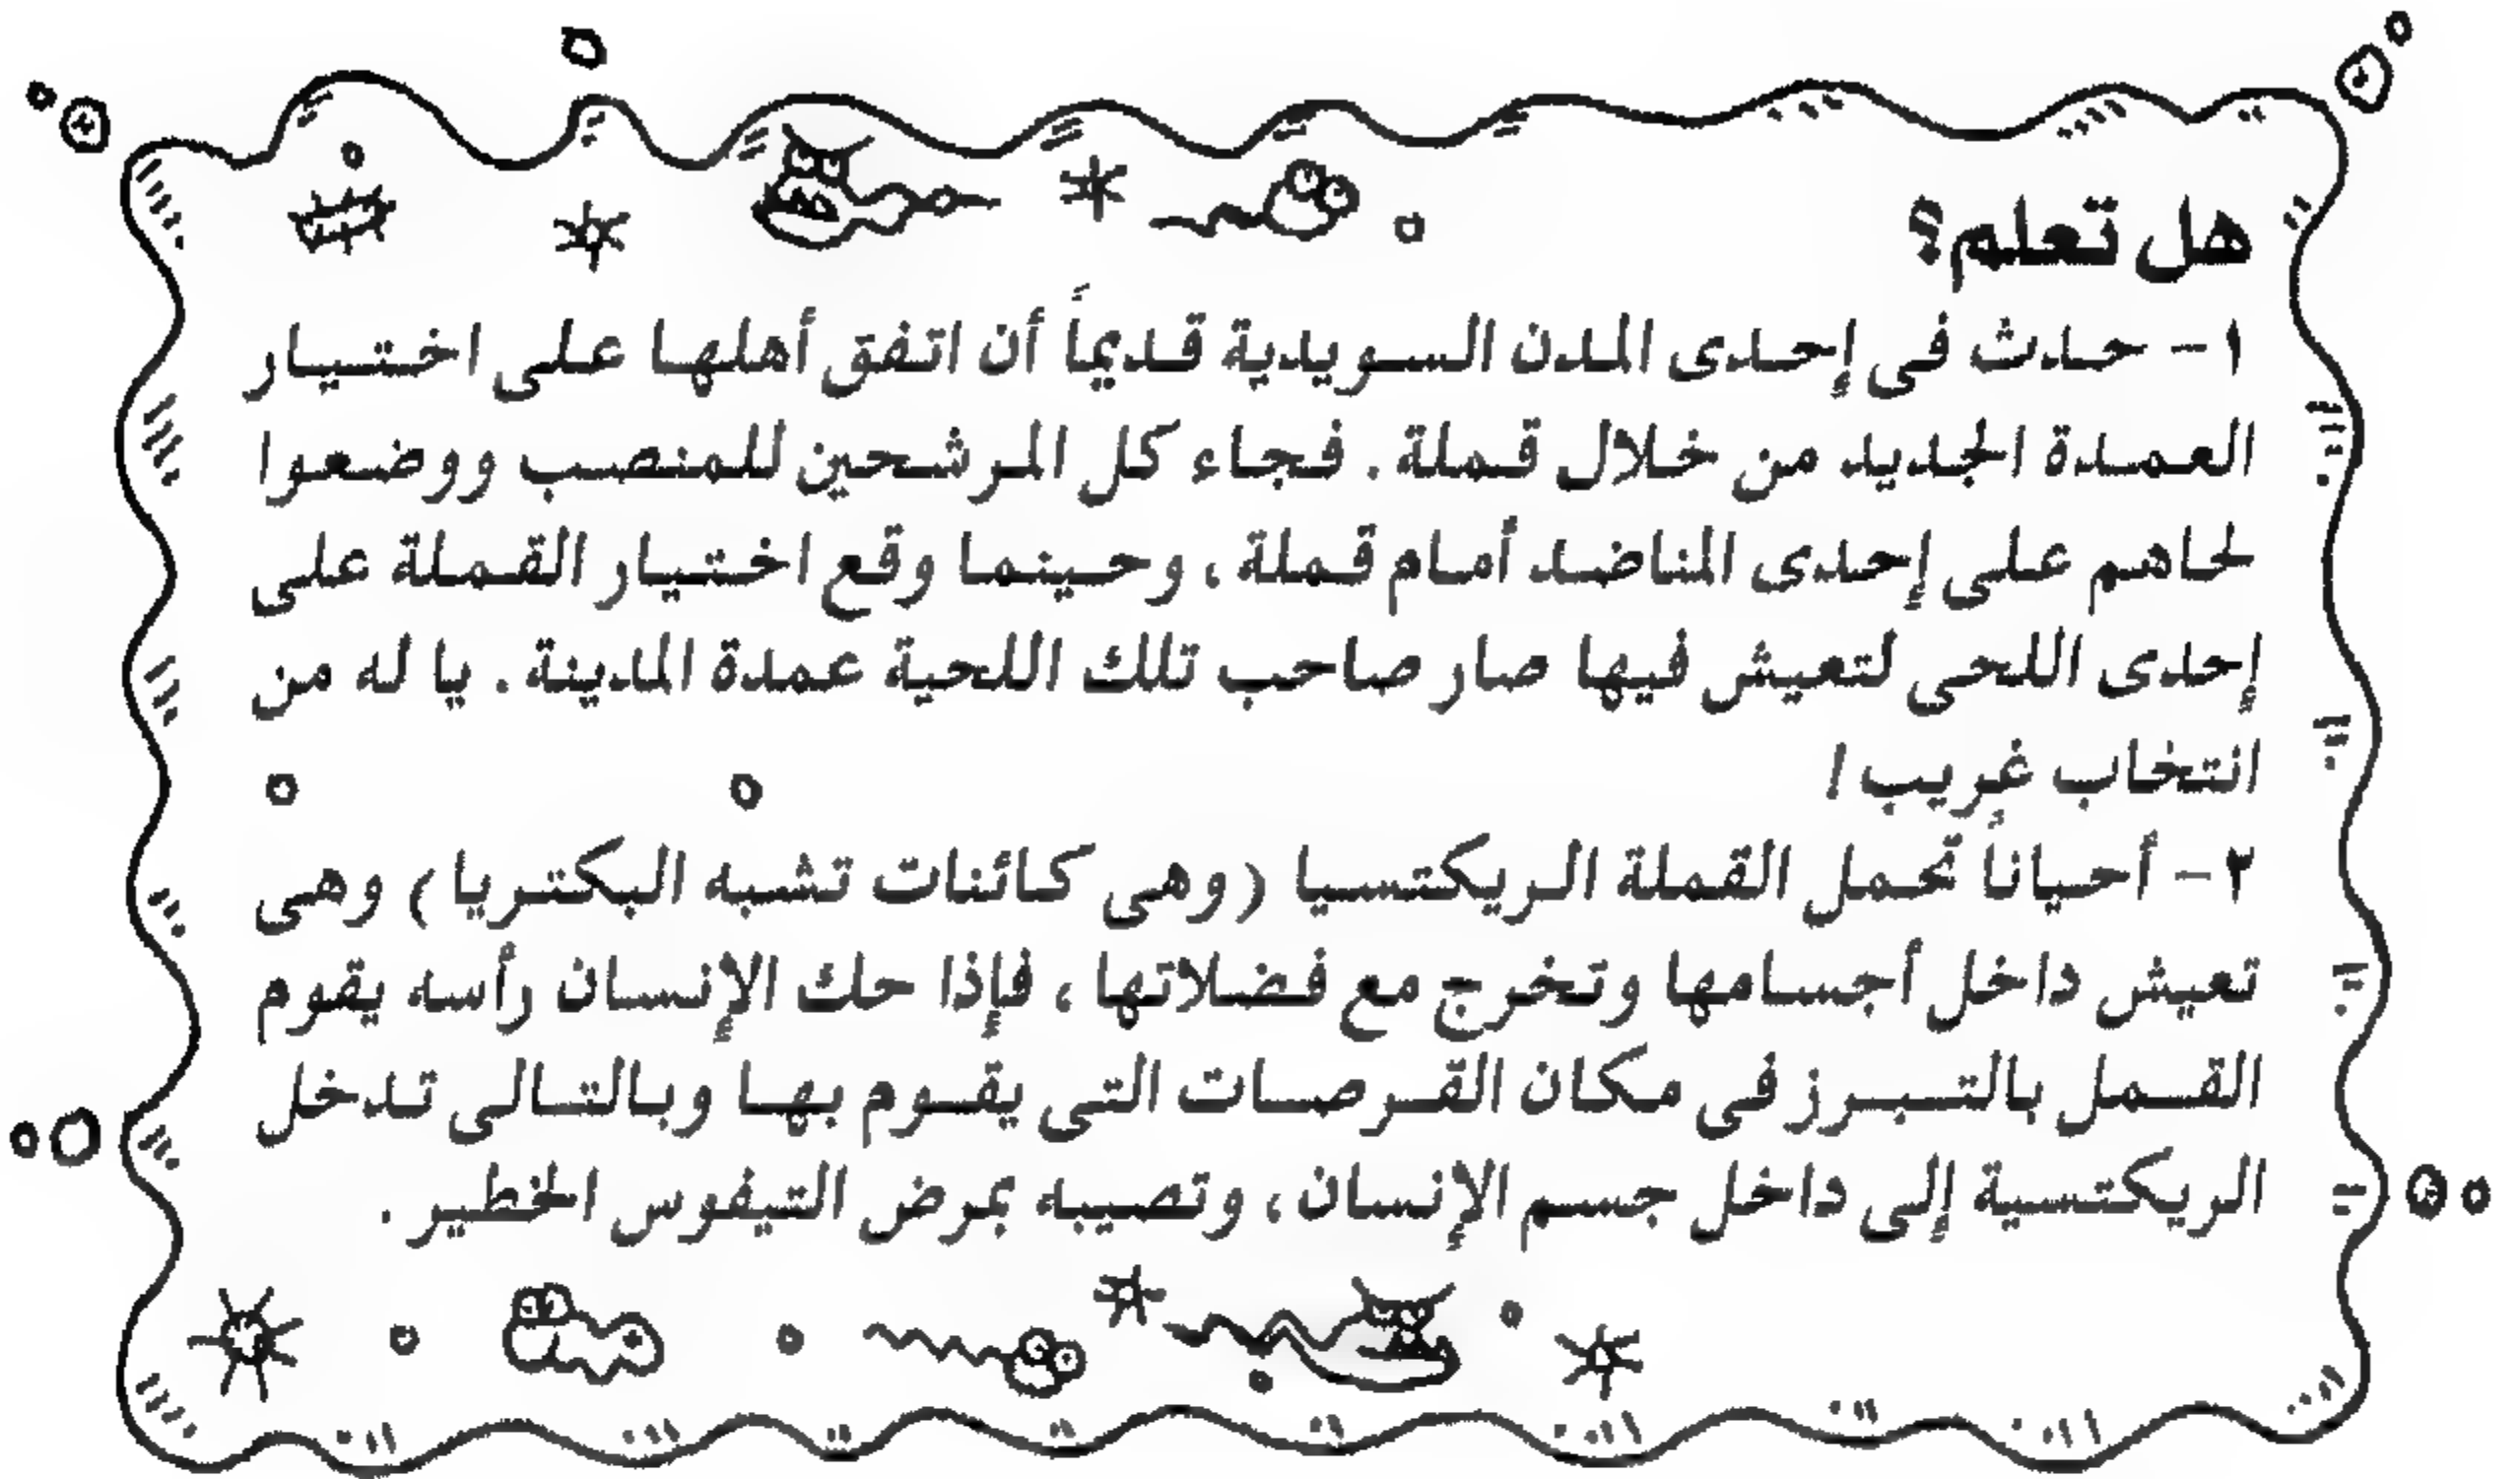 هل تعلم؟
١ - حدث فى إحدى المدن السويدية قديماً أن اتفق أهلها على اختيار
العمدة الجديد من خلال قملة. فجاء كل المرشحين للمنصب ووضعوا
لحاهم على إحدى المناضد أمام قملة، وحينما وقع اختيار القملة على
إحدى اللحى لتعيش فيها صار صاحب تلك اللحية عمدة المدينة. يا له من
انتخاب غريب!
٢ - أحياناً تحمل القملة الريكتسيا (وهى كائنات تشبه البكتريا) وهى
تعيش داخل أجسامها وتخرج مع فضلاتها، فإذا حك الإنسان رأسه يقوم
القمل بالتبرز فى مكان القرصات التى يقوم بها وبالتالى تدخل
الريكتسية إلى داخل جسم الإنسان، وتصيبه بمرض التيفوس الخطير.